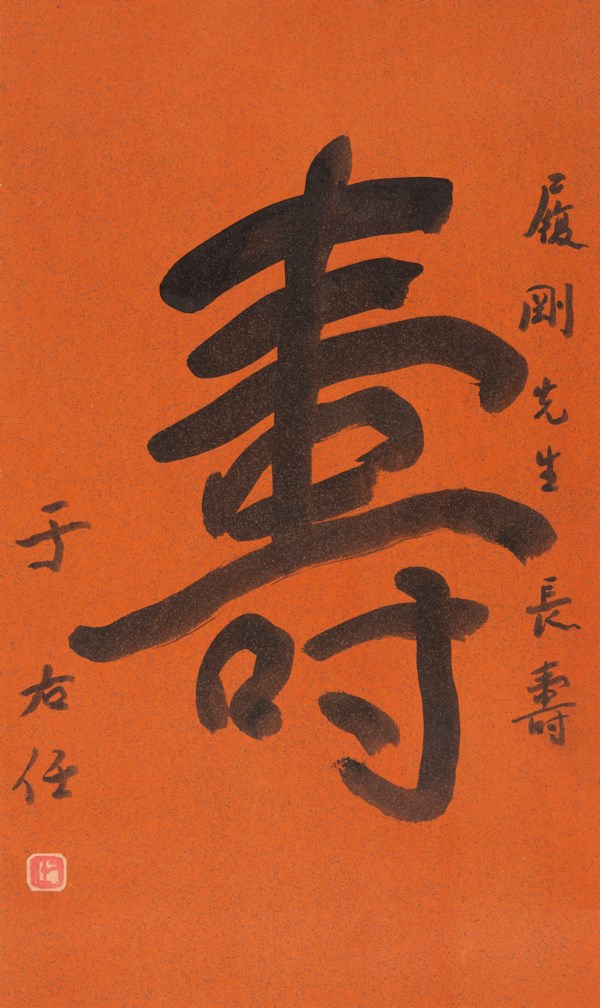 履剛先生長壽
壽
于右任